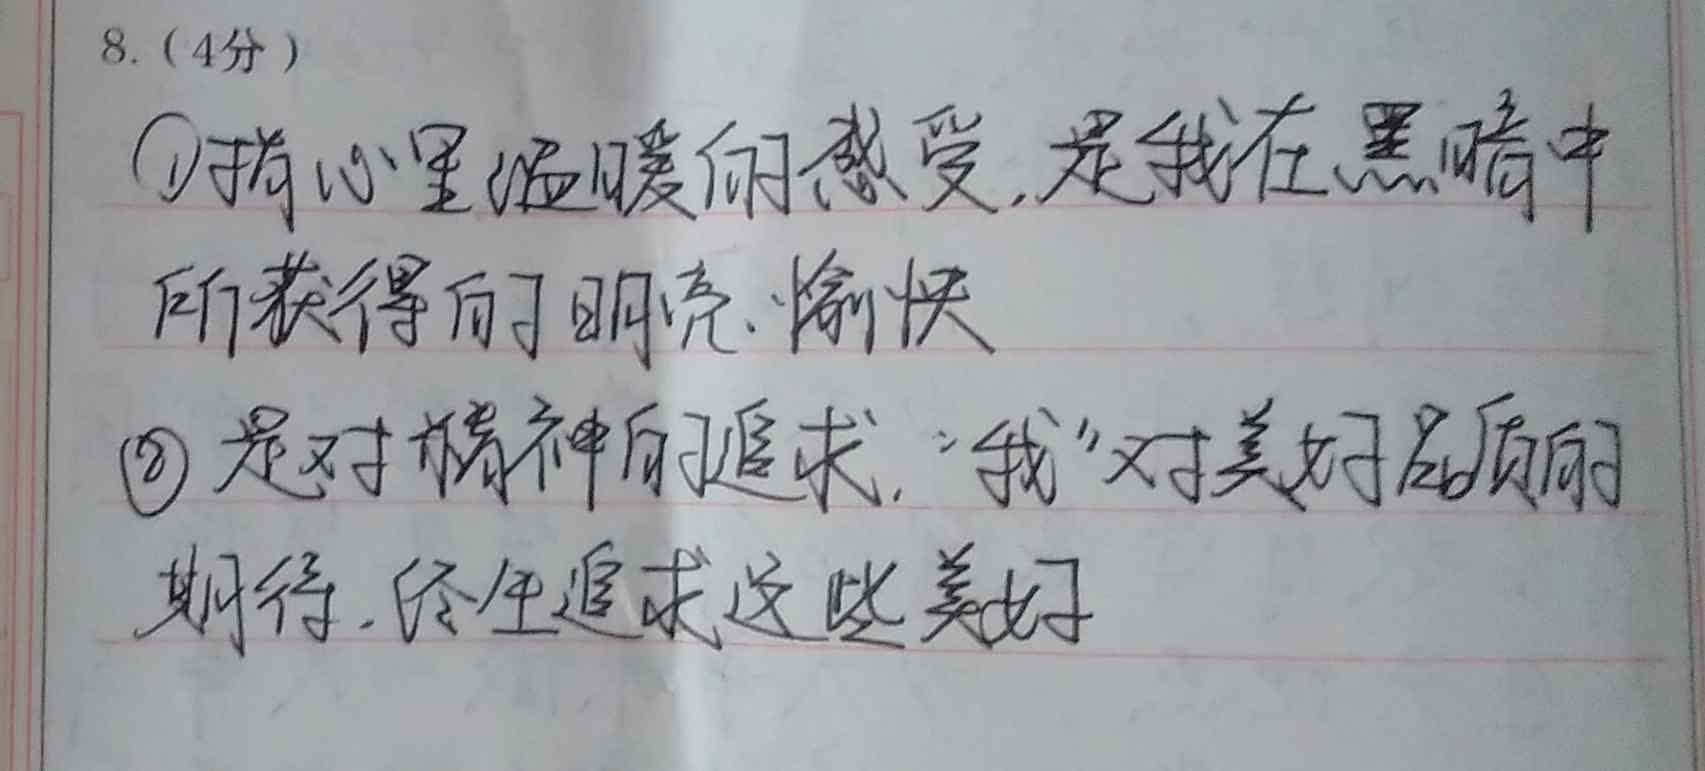 8.（4分）
①指心里温暖的感受，是我在黑暗中
所获得的明亮、愉快
②是对精神的追求，“我”对美好品质的
期待，终生追求这些美好